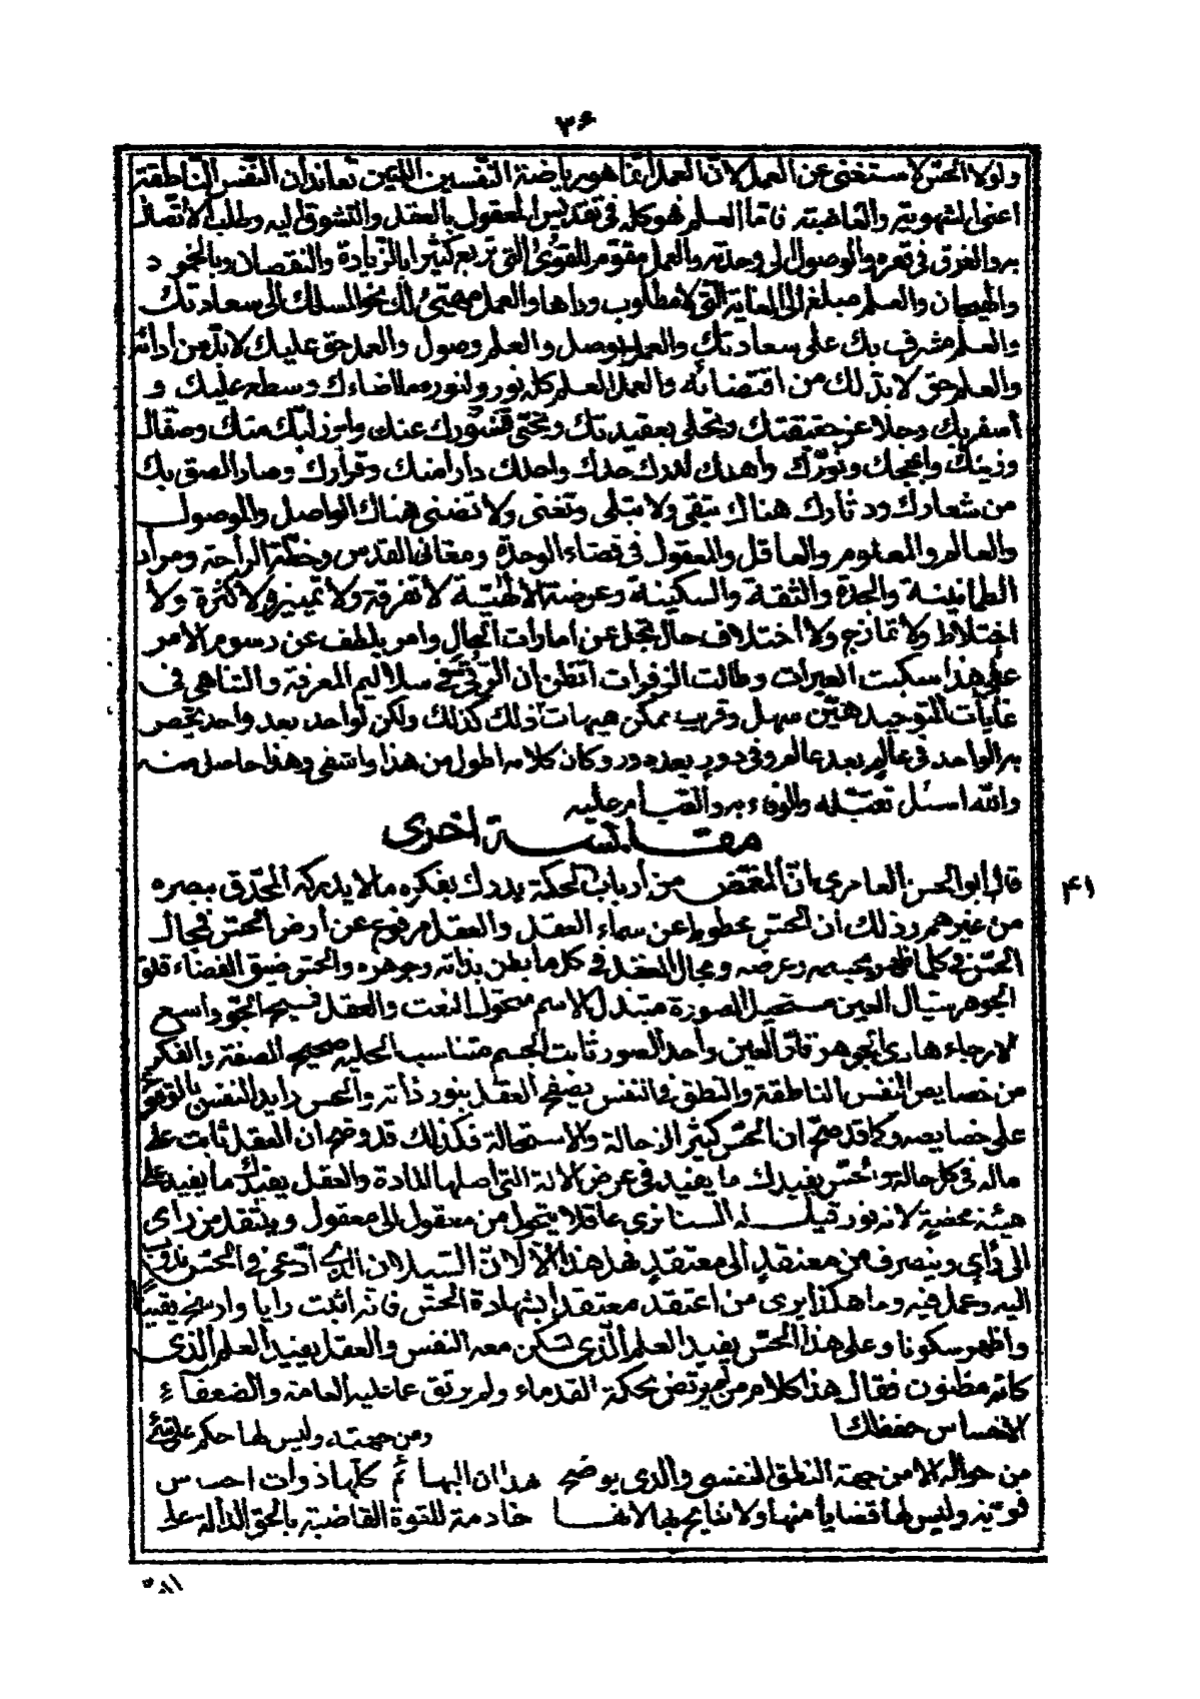 ٣۶
ولولا الحس لاستغنى عن العمل لان العمل انما هو رياضة النفسين اللتين تعاندان النفس الناطقة
اعنى الشهوية والغاضبة فاما العلم فهو كله فى تقديس المعقول بالعقل والتشوق اليه وطلب الاتصال
به والغرق فى قعره والوصول الى وحدته والعمل مقوم للقوى التى تربع كثيرا بالزيادة والنقصان وبالخمود
والهيجان والعلم مبلغ الى الغاية التى لا مطلوب وراها والعمل مهيئ لك نحو السلك الى سعادتك
والعلم مشرف بك على سعادتك والعمل يوصل والعلم وصول والعمل حق عليك لابد من ادائه
والعلم حق لابد لك من اقتضائه والعمل العلم كله نور ولنوره ما اضاءك وسطع عليك و
أسفر بك وجلا عن حقيقتك وتحلى بعقيدتك ونحى قشورك عنك وابرز لبك منك وصقالك
وزينك وابهجك ونورك وأهدك لمدك حدك واحلك دار امنك وقرارك وصار الصق بك
من شعارك ودثارك هناك تبقى ولا تبلى وتغنى ولا تضنى هناك الواصل والموصول
والعالم والمعلوم والعاقل والمعقول فى فضاء الوحدة ومغانى القدس وخطة الراحة ومراد
الطمانينة والجدة والثقة والسكينة وعرصة الالهية لا تفرقة ولا تمييز ولا كثرة ولا
اختلاط ولا تمازج ولا اختلاف حال تجل عن امارات الحال وامر يلطف عن رسوم الامر
على هذا سكبت العبرات وطالت الزفرات اتظن ان الترقى فى سلاليم المعرفة والتناهى فى
غايات التوحيد هين سهل وقريب ممكن هيهات ذلك كذلك ولكن لواحد بعد واحد يختص
به الواحد فى عالم بعد عالم وفى دور بعد دور وكان كلامه اطول من هذا واشفى وهذا حاصل منه
والله اسئل تقبله والوفاء به والقيام عليه
مقابسة اخرى
۴١
قال ابو الحسن العامرى ان المغمض من أرباب الحكمة يدرك بفكره ما لا يدركه المحدق ببصره
من غيرهم وذلك أن الحس محطوط عن سماء العقل والعقل مرفوع عن أرض الحس فمجال
الحس فى كلما ظهر بجسمه وعرضه ومجال العقل فى كل ما بطن بذاته وجوهره والحس ضيق الفضاء قلق
الجوهر سيال العين مستحيل الصورة متبدل الاسم متحول النعت والعقل فسيح الجو واسع
الارجاء هادى الجوهر قار العين واحد الصور ثابت الجسم متناسب الحلية صحيح الصفة والفكر
من خصايص النفس الناطقة والنطق فى النفس يصفى العقل بنور ذاته والحس رايد النفس بالوقوع
على خصايصه وكما قد صح ان الحس كثير الاحالة والاستحالة فكذلك قد وضح ان العقل ثابت على
ماله فى كل حالة والحس يفيدك ما يفيد فى عرض الآلة التى اصلها المادة والعقل يفيدك ما يفيد على
هيئة محضة لانه نور قيل له السنا نرى عاقلا يتحول من معقول الى معقول وينتقد من راى
الى رأى وينصرف من معتقد الى معتقد فهل هذا الا لان السيلان الذى أدعى فى الحس قد دب
اليه وعمل فيه وما هكذا يرى من اعتقد معتقدا بشهادة الحس فانه اثبت رايا وارسخ يقينا
واظهر سكونا وعلى هذا الحس يفيد العلم الذى تسكن معه النفس والعقل يفيد العلم الذى
كانه مظنون فقال هذا كلام من لم يرتض بحكمة القدماء ولم يرتق عما عليه العامة والضعفاء
الاحساس حفظك ومن جهته وليس لها حكم على شئ
من حواله الا من جهة النطق النفسى والذى يوضح هذا ان البهائم كلها ذوات احساس
قوية وليس لها قضايا منها ولا نتايج بها لانها خادمة للقوة القاضية بالحق الدالة على